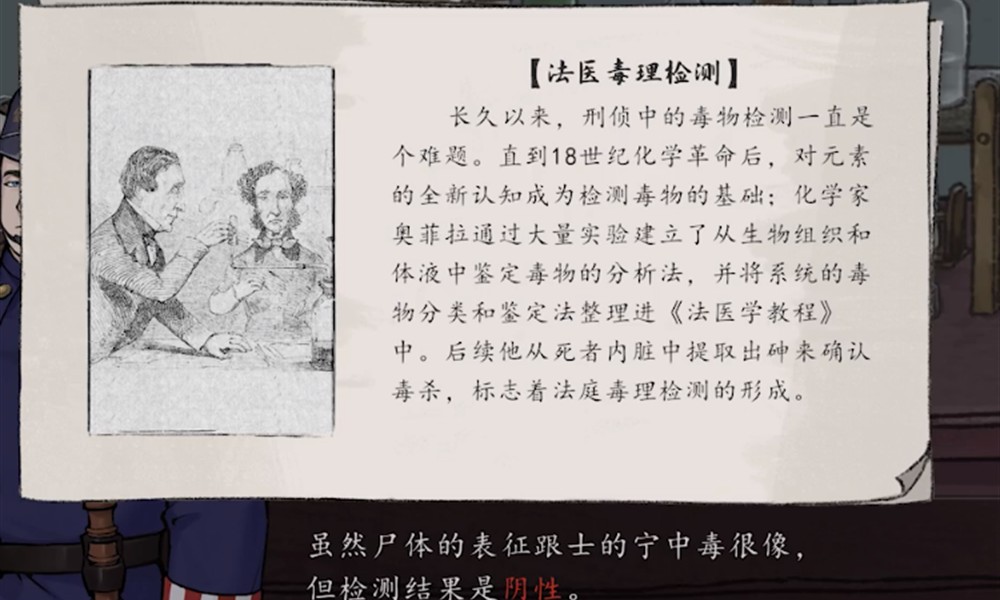 【法医毒理检测】
长久以来，刑侦中的毒物检测一直是
个难题。直到18世纪化学革命后，对元素
的全新认知成为检测毒物的基础；化学家
奥菲拉通过大量实验建立了从生物组织和
体液中鉴定毒物的分析法，并将系统的毒
物分类和鉴定法整理进《法医学教程》
中。后续他从死者内脏中提取出砷来确认
毒杀，标志着法庭毒理检测的形成。
虽然尸体的表征跟士的宁中毒很像，
但检测结果是阴性。